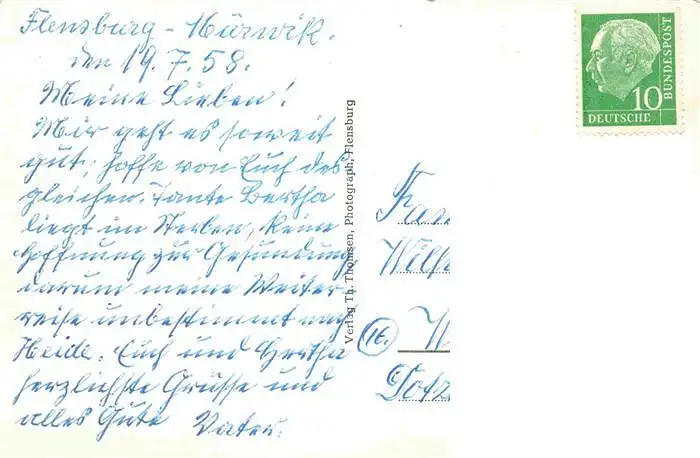 Flensburg - Mürwik.
den 19.7.58.
Meine Lieben!
Mir geht es soweit
gut, hoffe von Euch des
gleichen. Tante Bertha
liegt im Sterben, keine
Hoffnung zur Gesundung
darum meine Weiter
reise unbestimmt nach
Heide. Euch und Hertha
herzlichste Grüsse und
alles Gute Vater.
Verlag Th. Thomsen, Photograph, Flensburg
10
DEUTSCHE BUNDESPOST
Fam
Wilh
(16) W
Dotz